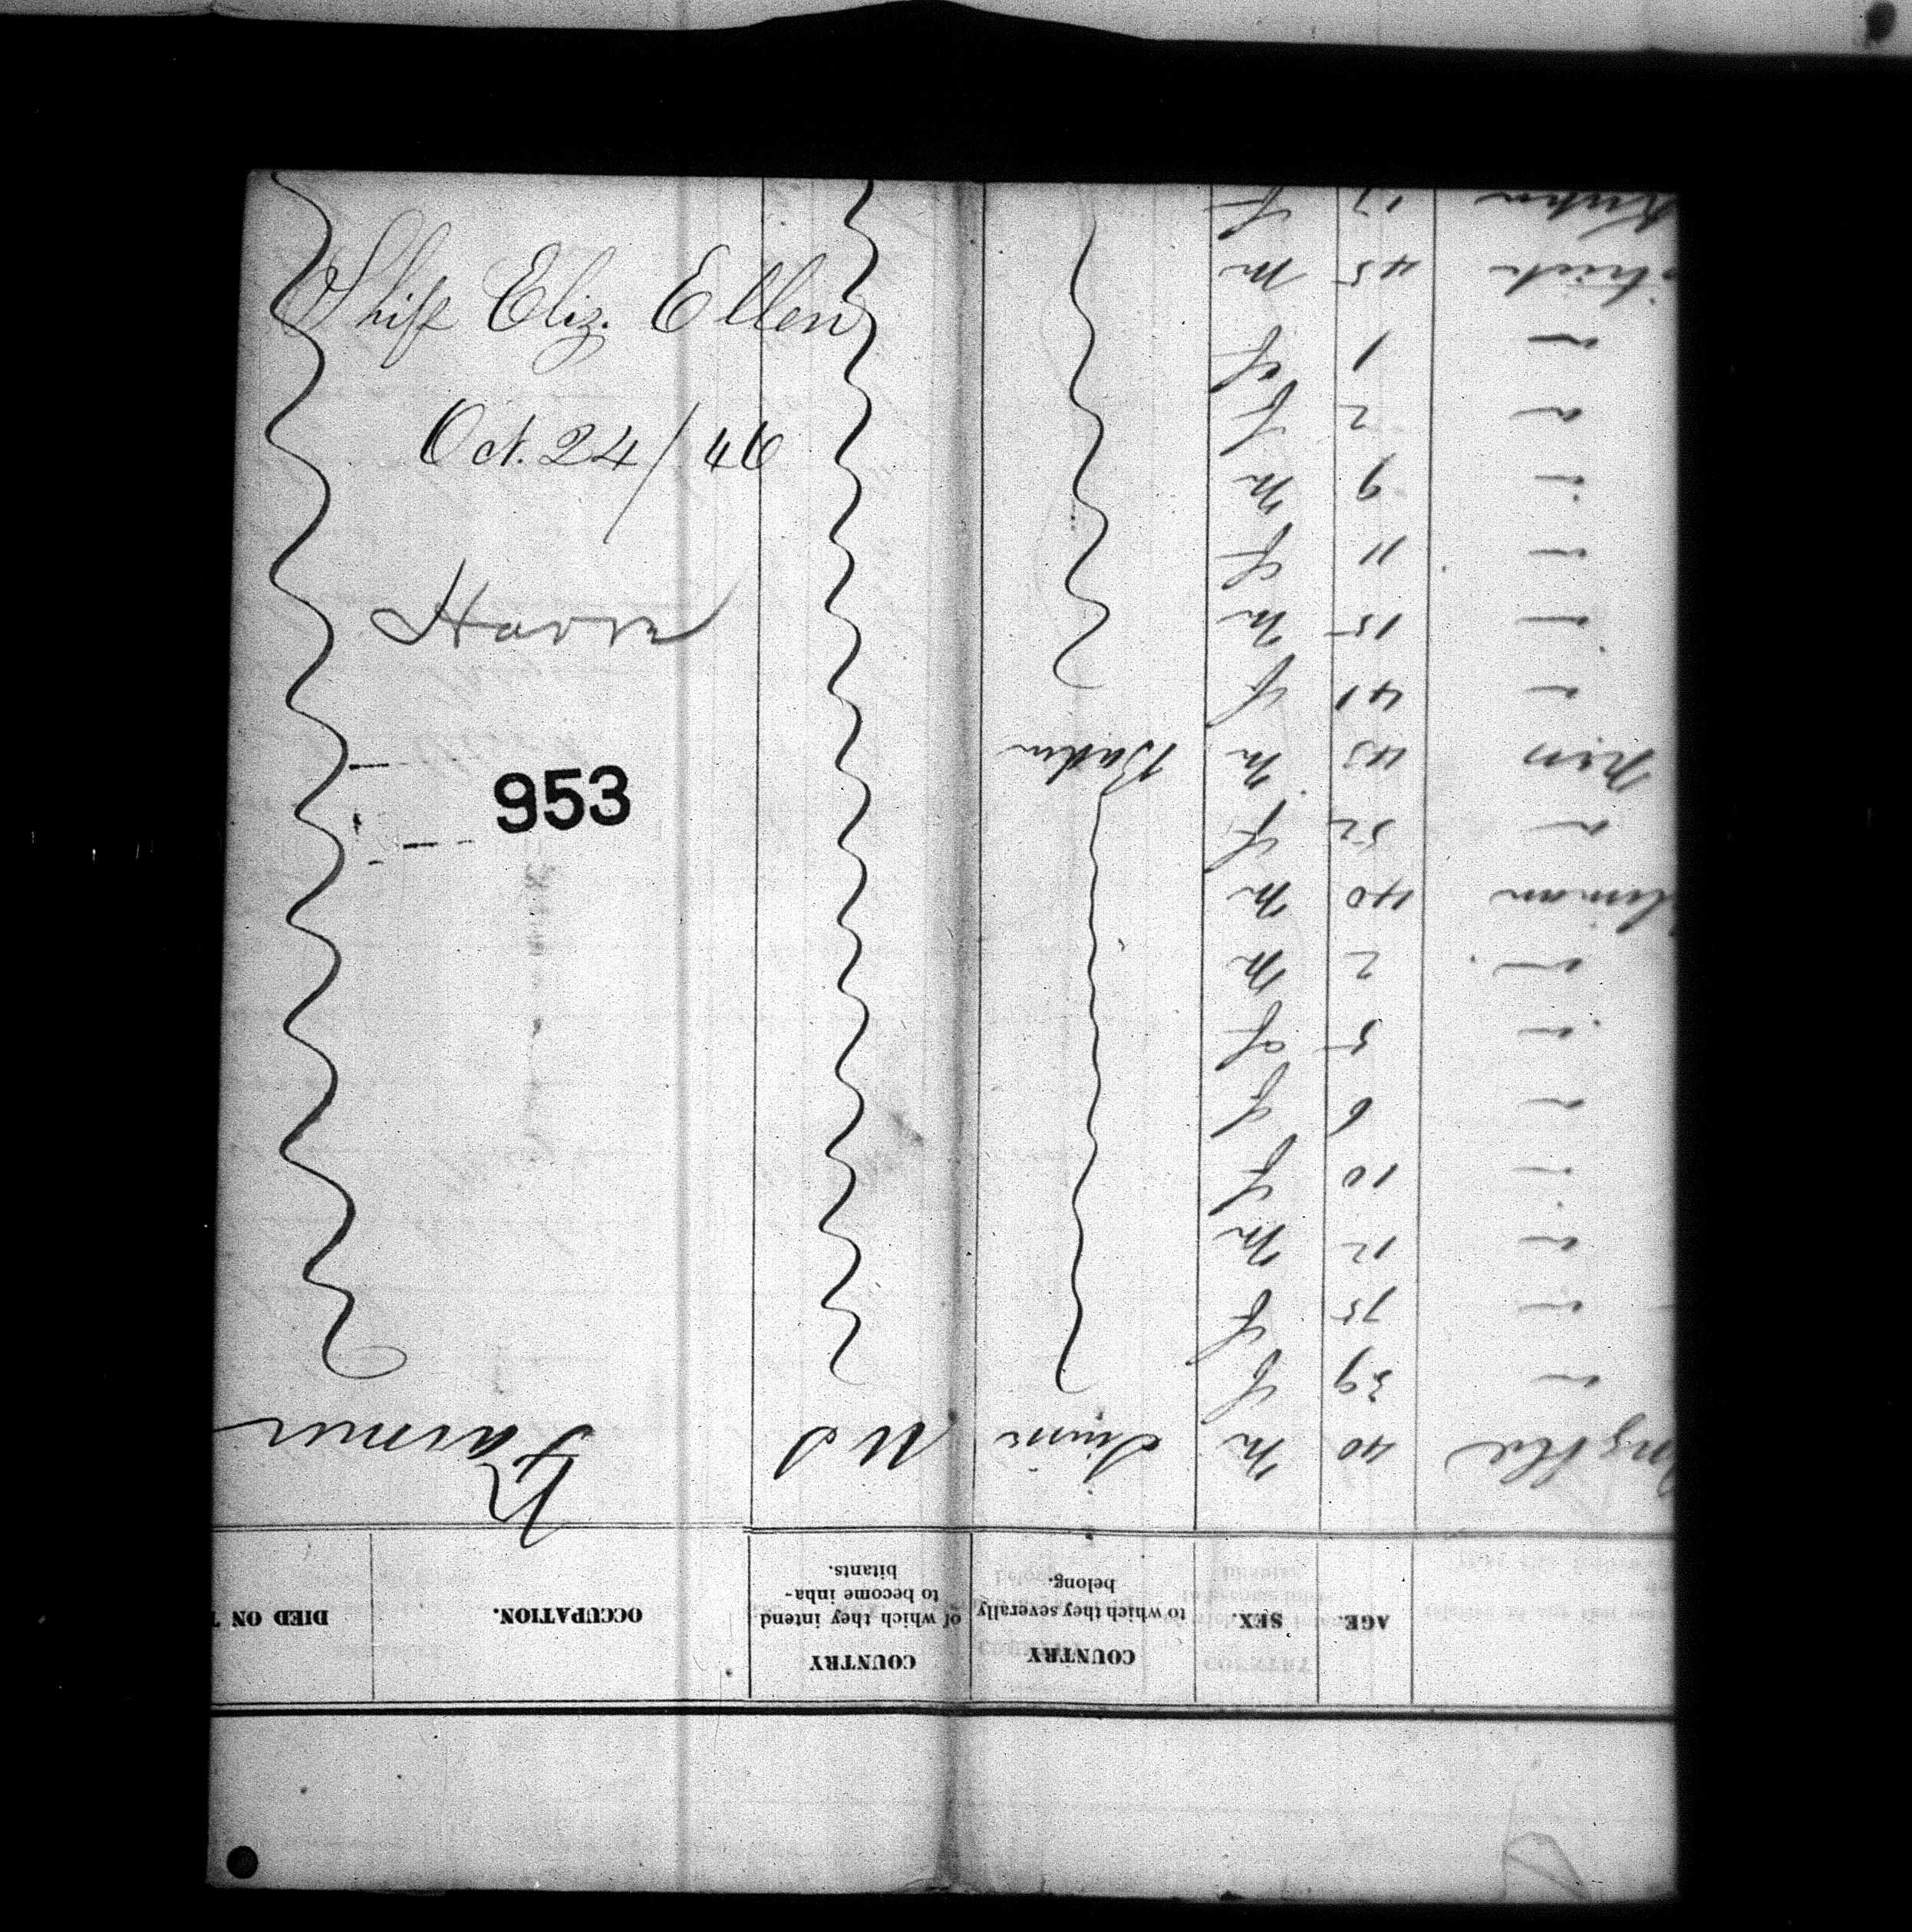 Ship Eliz. Ellen
Oct. 24/46
Havre
953
AGE. SEX. COUNTRY to which they severally belong. COUNTRY of which they intend to become inha-
bitants. OCCUPATION. DIED ON
40 M Swiss US Farmer
" 39 f
" 15 f
" 12 M
" 10 f
" 9 f
" 5 f
" 2 M
40 M
" 52 f
43 M Baden
" 41 f
" 15 M
" 11 f
" 6 M
" 2 f
" 1 f
45 M
17 f